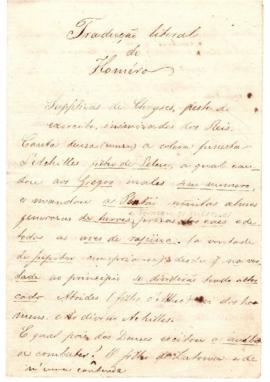 Traducção litteral
de
Homéro
Supplicas de Chryses, peste do
exercito, inimizades dos Reis.
Canta deusa (musa) a colera funesta
d'Achilles filho de Peleu, a qual cau-
sou aos Gregos males sem numero,
e mandou a Plutão muitas almas
de heroes, presas dos cães e de
todas as aves de rapina. (a vontade
de Jupiter cumpria-se) desde q. no
ao principio se dividirão tendo alter-
cado Atrides (filho d'Atreu) rei dos ho-
mens, e o divino Achilles.
E qual pois dos Deuses excitou
a combater? O filho de Latona e de